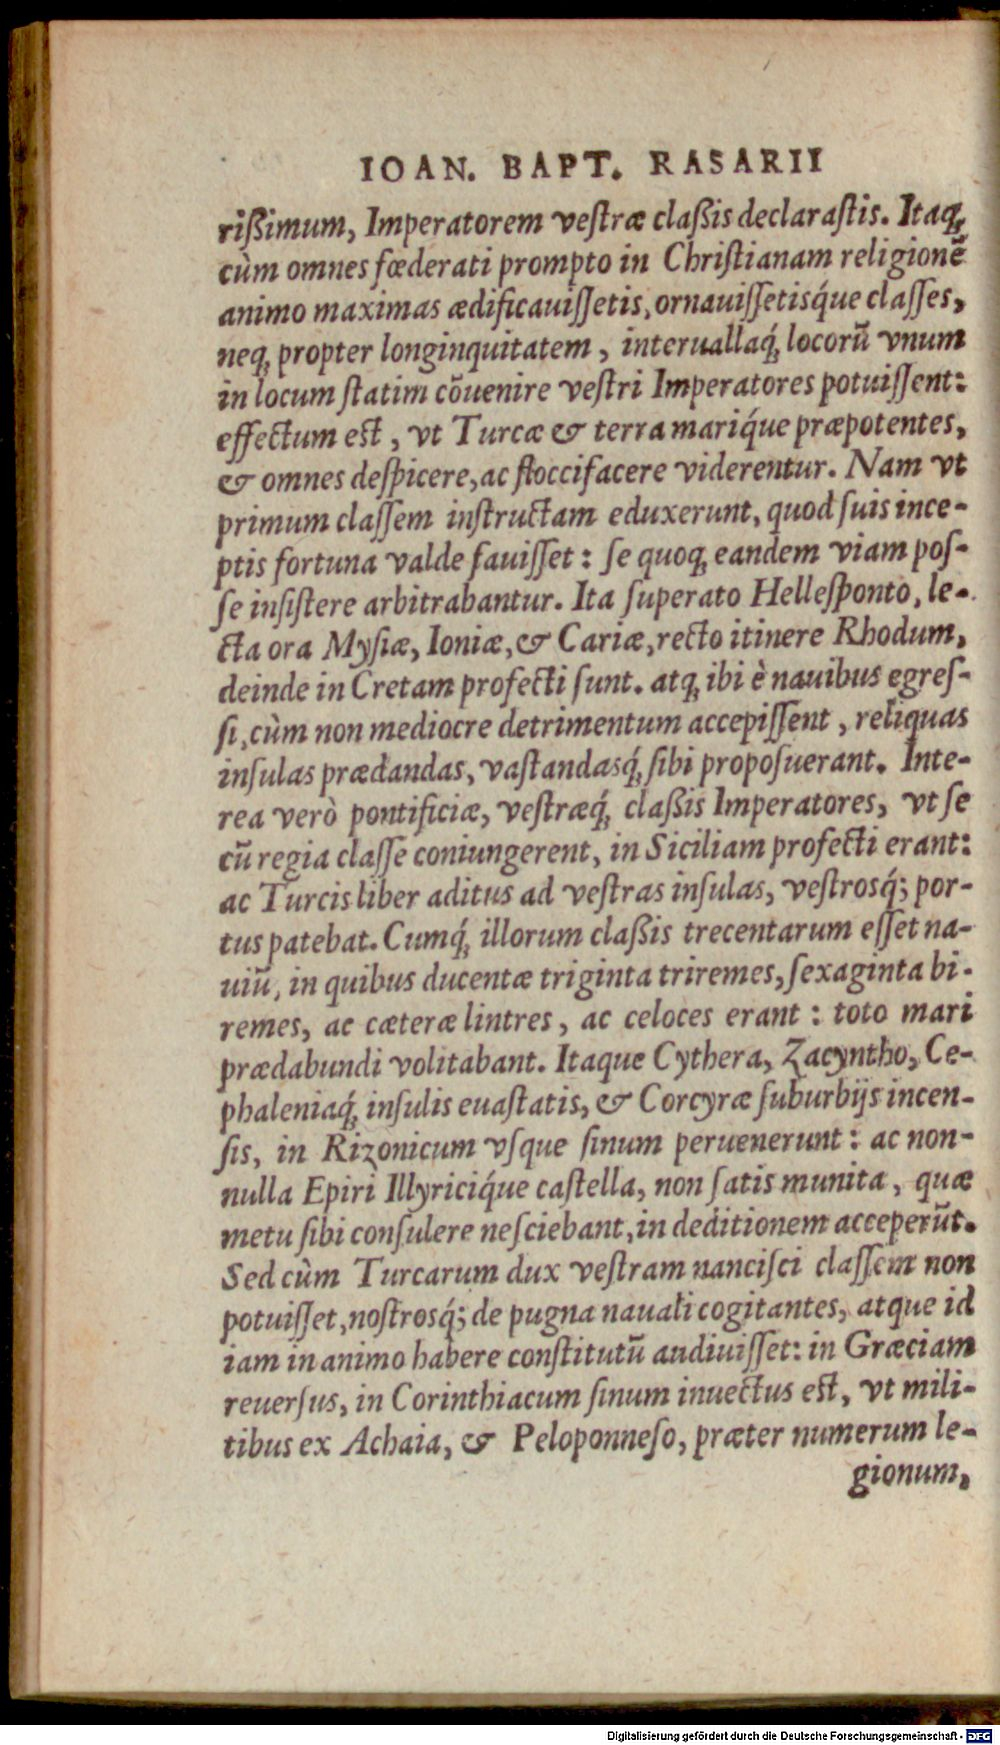 IOAN. BAPT. RASARII
rißimum, Imperatorem vestræ claßis declarastis. Itaq́;
cùm omnes fœderati prompto in Christianam religionẽ
animo maximas ædificauißetis, ornauissetisq́ue classes,
neq; propter longinquitatem, interuallaq́; locorũ vnum
in locum statim cõuenire vestri Imperatores potuissent:
effectum est, vt Turcæ & terra mariq́ue præpotentes,
& omnes despicere, ac floccifacere viderentur. Nam vt
primum classem instructam eduxerunt, quod suis ince-
ptis fortuna valde fauisset: se quoq; eandem viam pos-
se insistere arbitrabantur. Ita superato Hellesponto, le-
cta ora Mysiæ, Ioniæ, & Cariæ, recto itinere Rhodum,
deinde in Cretam profecti sunt. atq; ibi è nauibus egres-
si, cùm non mediocre detrimentum accepissent, reliquas
insulas prædandas, vastandasq́; sibi proposuerant. Inte-
rea verò pontificiæ, vestræq́; claßis Imperatores, vt se
cũ regia classe coniungerent, in Siciliam profecti erant:
ac Turcis liber aditus ad vestras insulas, vestrosq́; por-
tus patebat. Cumq́; illorum claßis trecentarum esset na-
uiũ, in quibus ducentæ triginta triremes, sexaginta bi-
remes, ac cæteræ lintres, ac celoces erant: toto mari
prædabundi volitabant. Itaque Cythera, Zacyntho, Ce-
phaleniaq́; insulis euastatis, & Corcyræ suburbijs incen-
sis, in Rizonicum vsque sinum peruenerunt: ac non-
nulla Epiri Illyriciq́ue castella, non satis munita, quæ
metu sibi consulere nesciebant, in deditionem acceperũt.
Sed cùm Turcarum dux vestram nancisci classem non
potuisset, nostrosq́; de pugna nauali cogitantes, atque id
iam in animo habere constitutũ audiuisset: in Græciam
reuersus, in Corinthiacum sinum inuectus est, vt mili-
tibus ex Achaia, & Peloponneso, præter numerum le-
gionum,
Digitalisierung gefördert durch die Deutsche Forschungsgemeinschaft - DFG